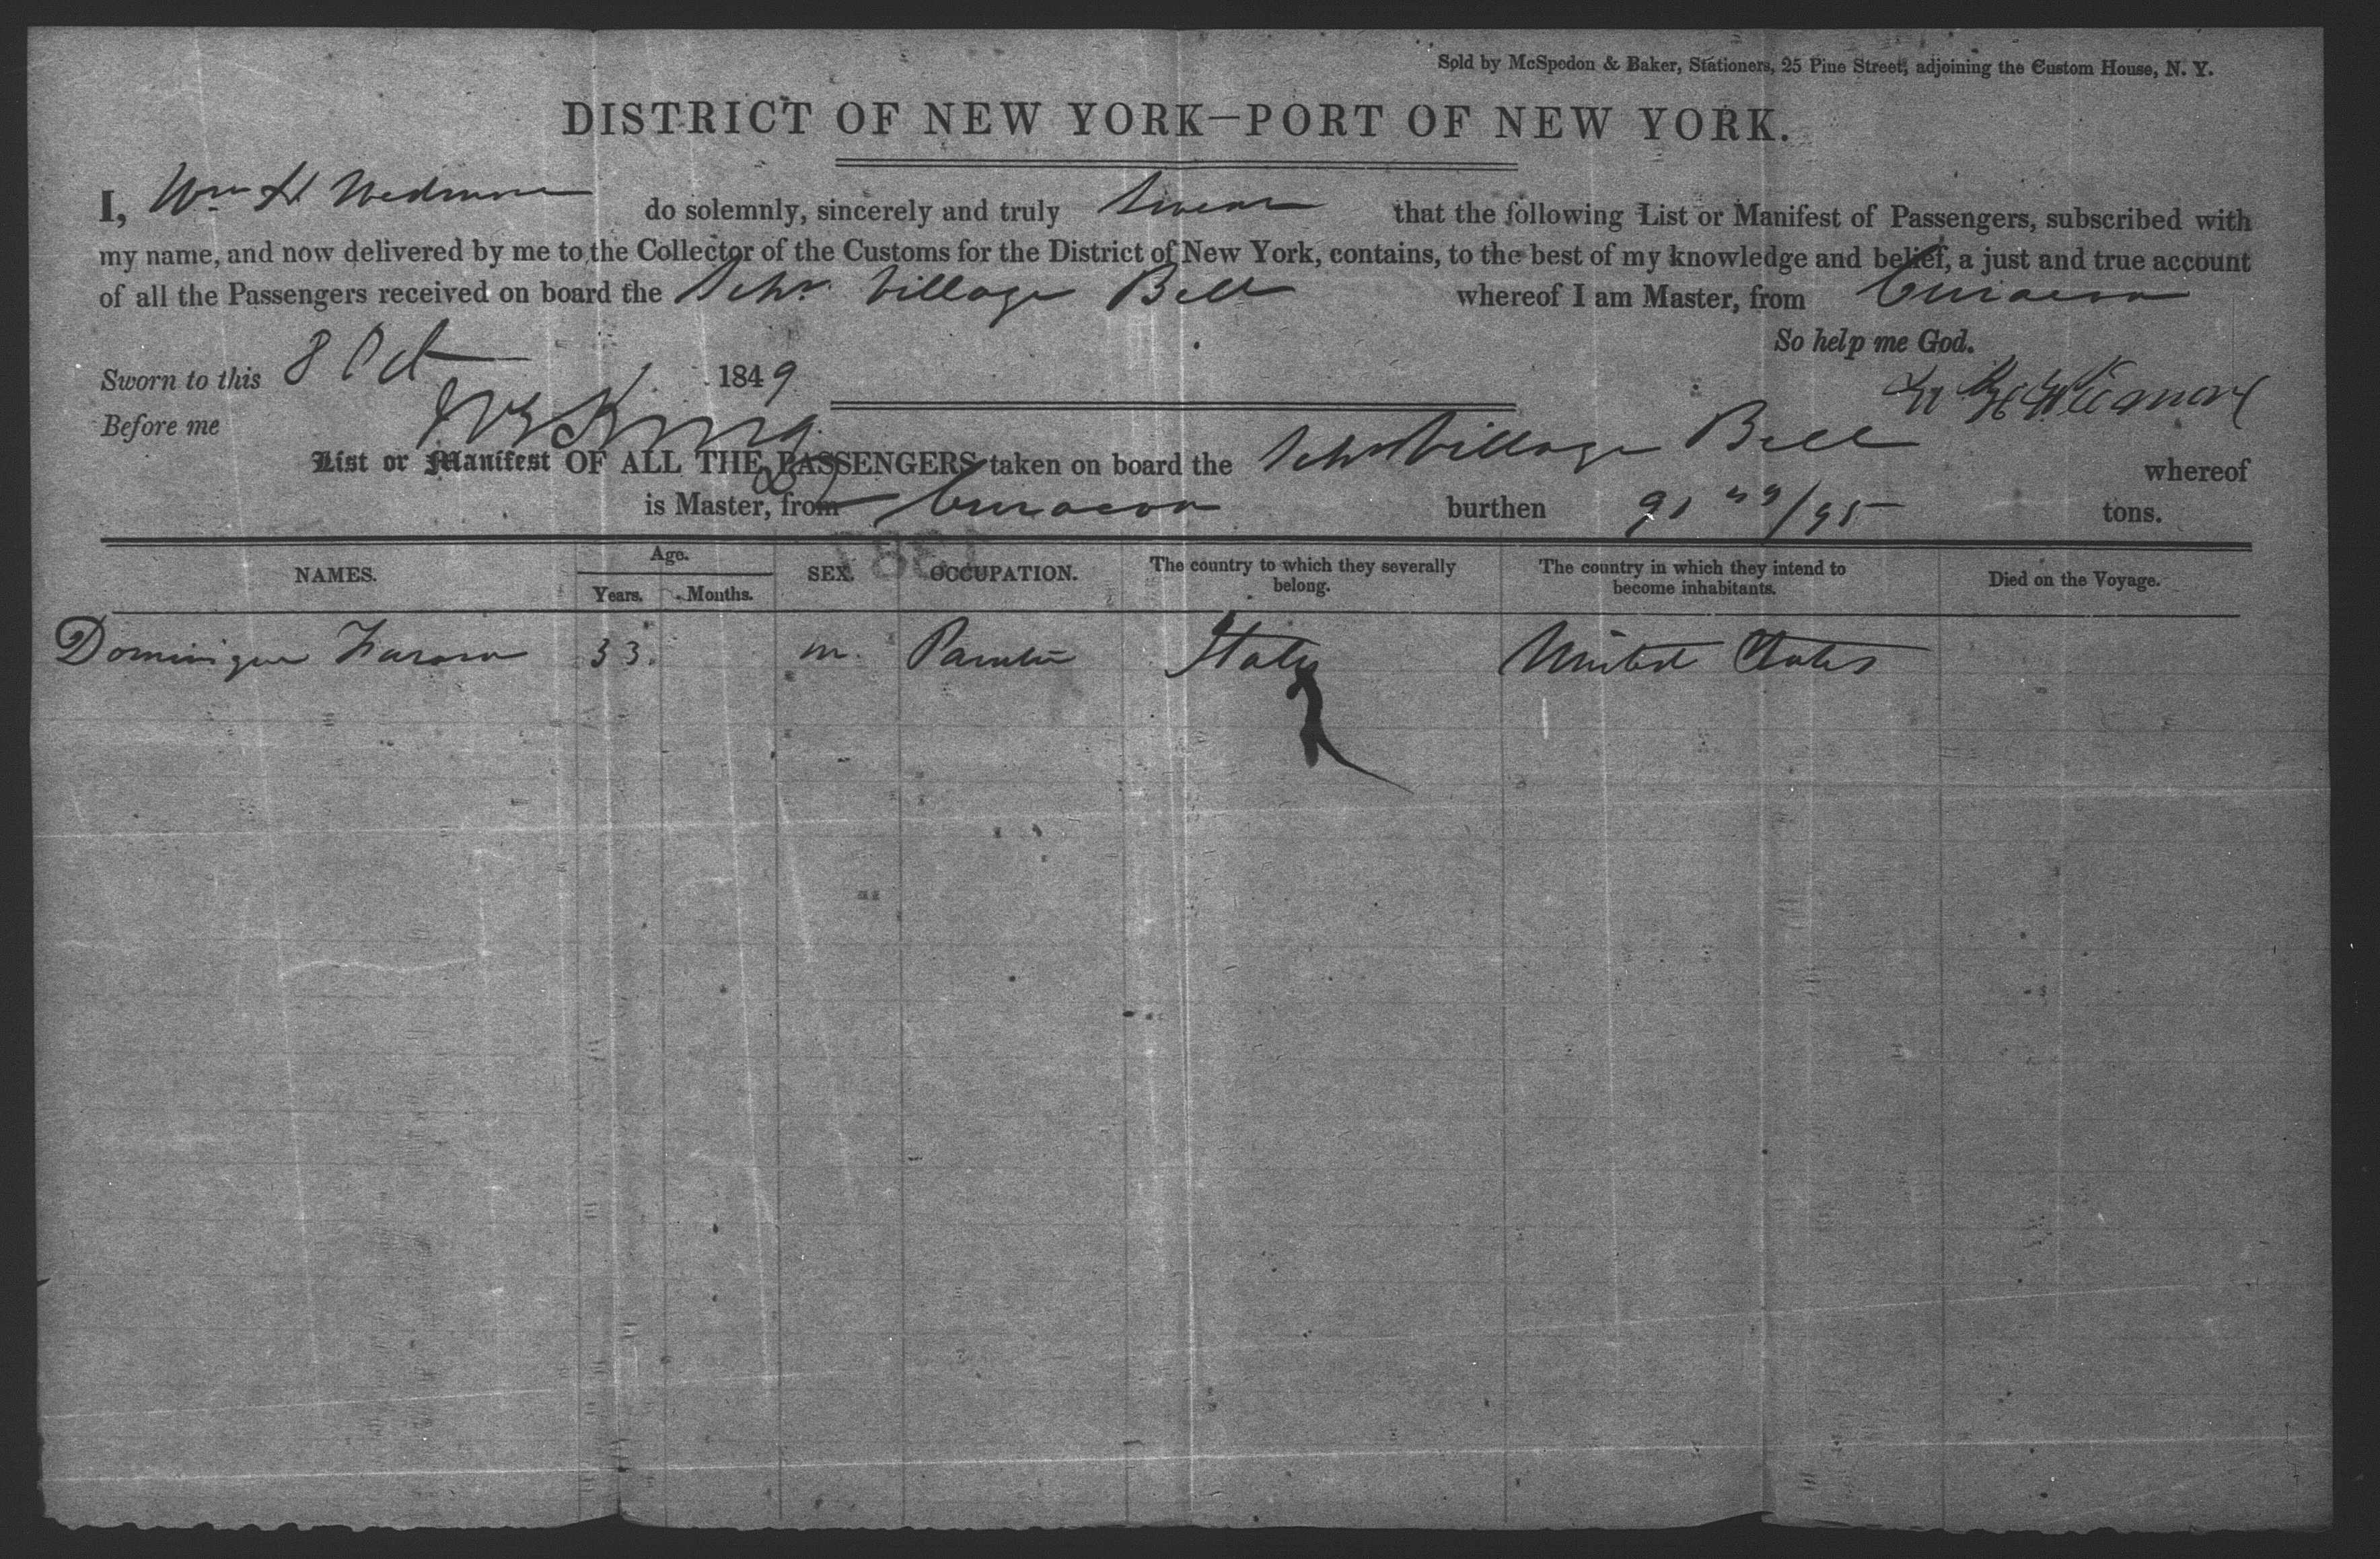 Sold by McSpedon & Baker, Stationers, 25 Pine Street, adjoining the Custom House, N. Y.
DISTRICT OF NEW YORK—PORT OF NEW YORK.
I, Wm H do solemnly, sincerely and truly swear that the following List or Manifest of Passengers, subscribed with
my name, and now delivered by me to the Collector of the Customs for the District of New York, contains, to the best of my knowledge and belief, a just and true account
of all the Passengers received on board the Schr Village Bell whereof I am Master, from Curacoa
So help me God.
Sworn to this 8 Oct 1849
Before me King
List or Manifest OF ALL THE PASSENGERS taken on board the Schr Village Bell whereof
is Master, from Curacoa burthen 91 /95 tons.
NAMES. Age. Years. Months. SEX. OCCUPATION. The country to which they severally belong. The country in which they intend to become inhabitants. Died on the Voyage.
Dominique 33. m. Painter Italy United States